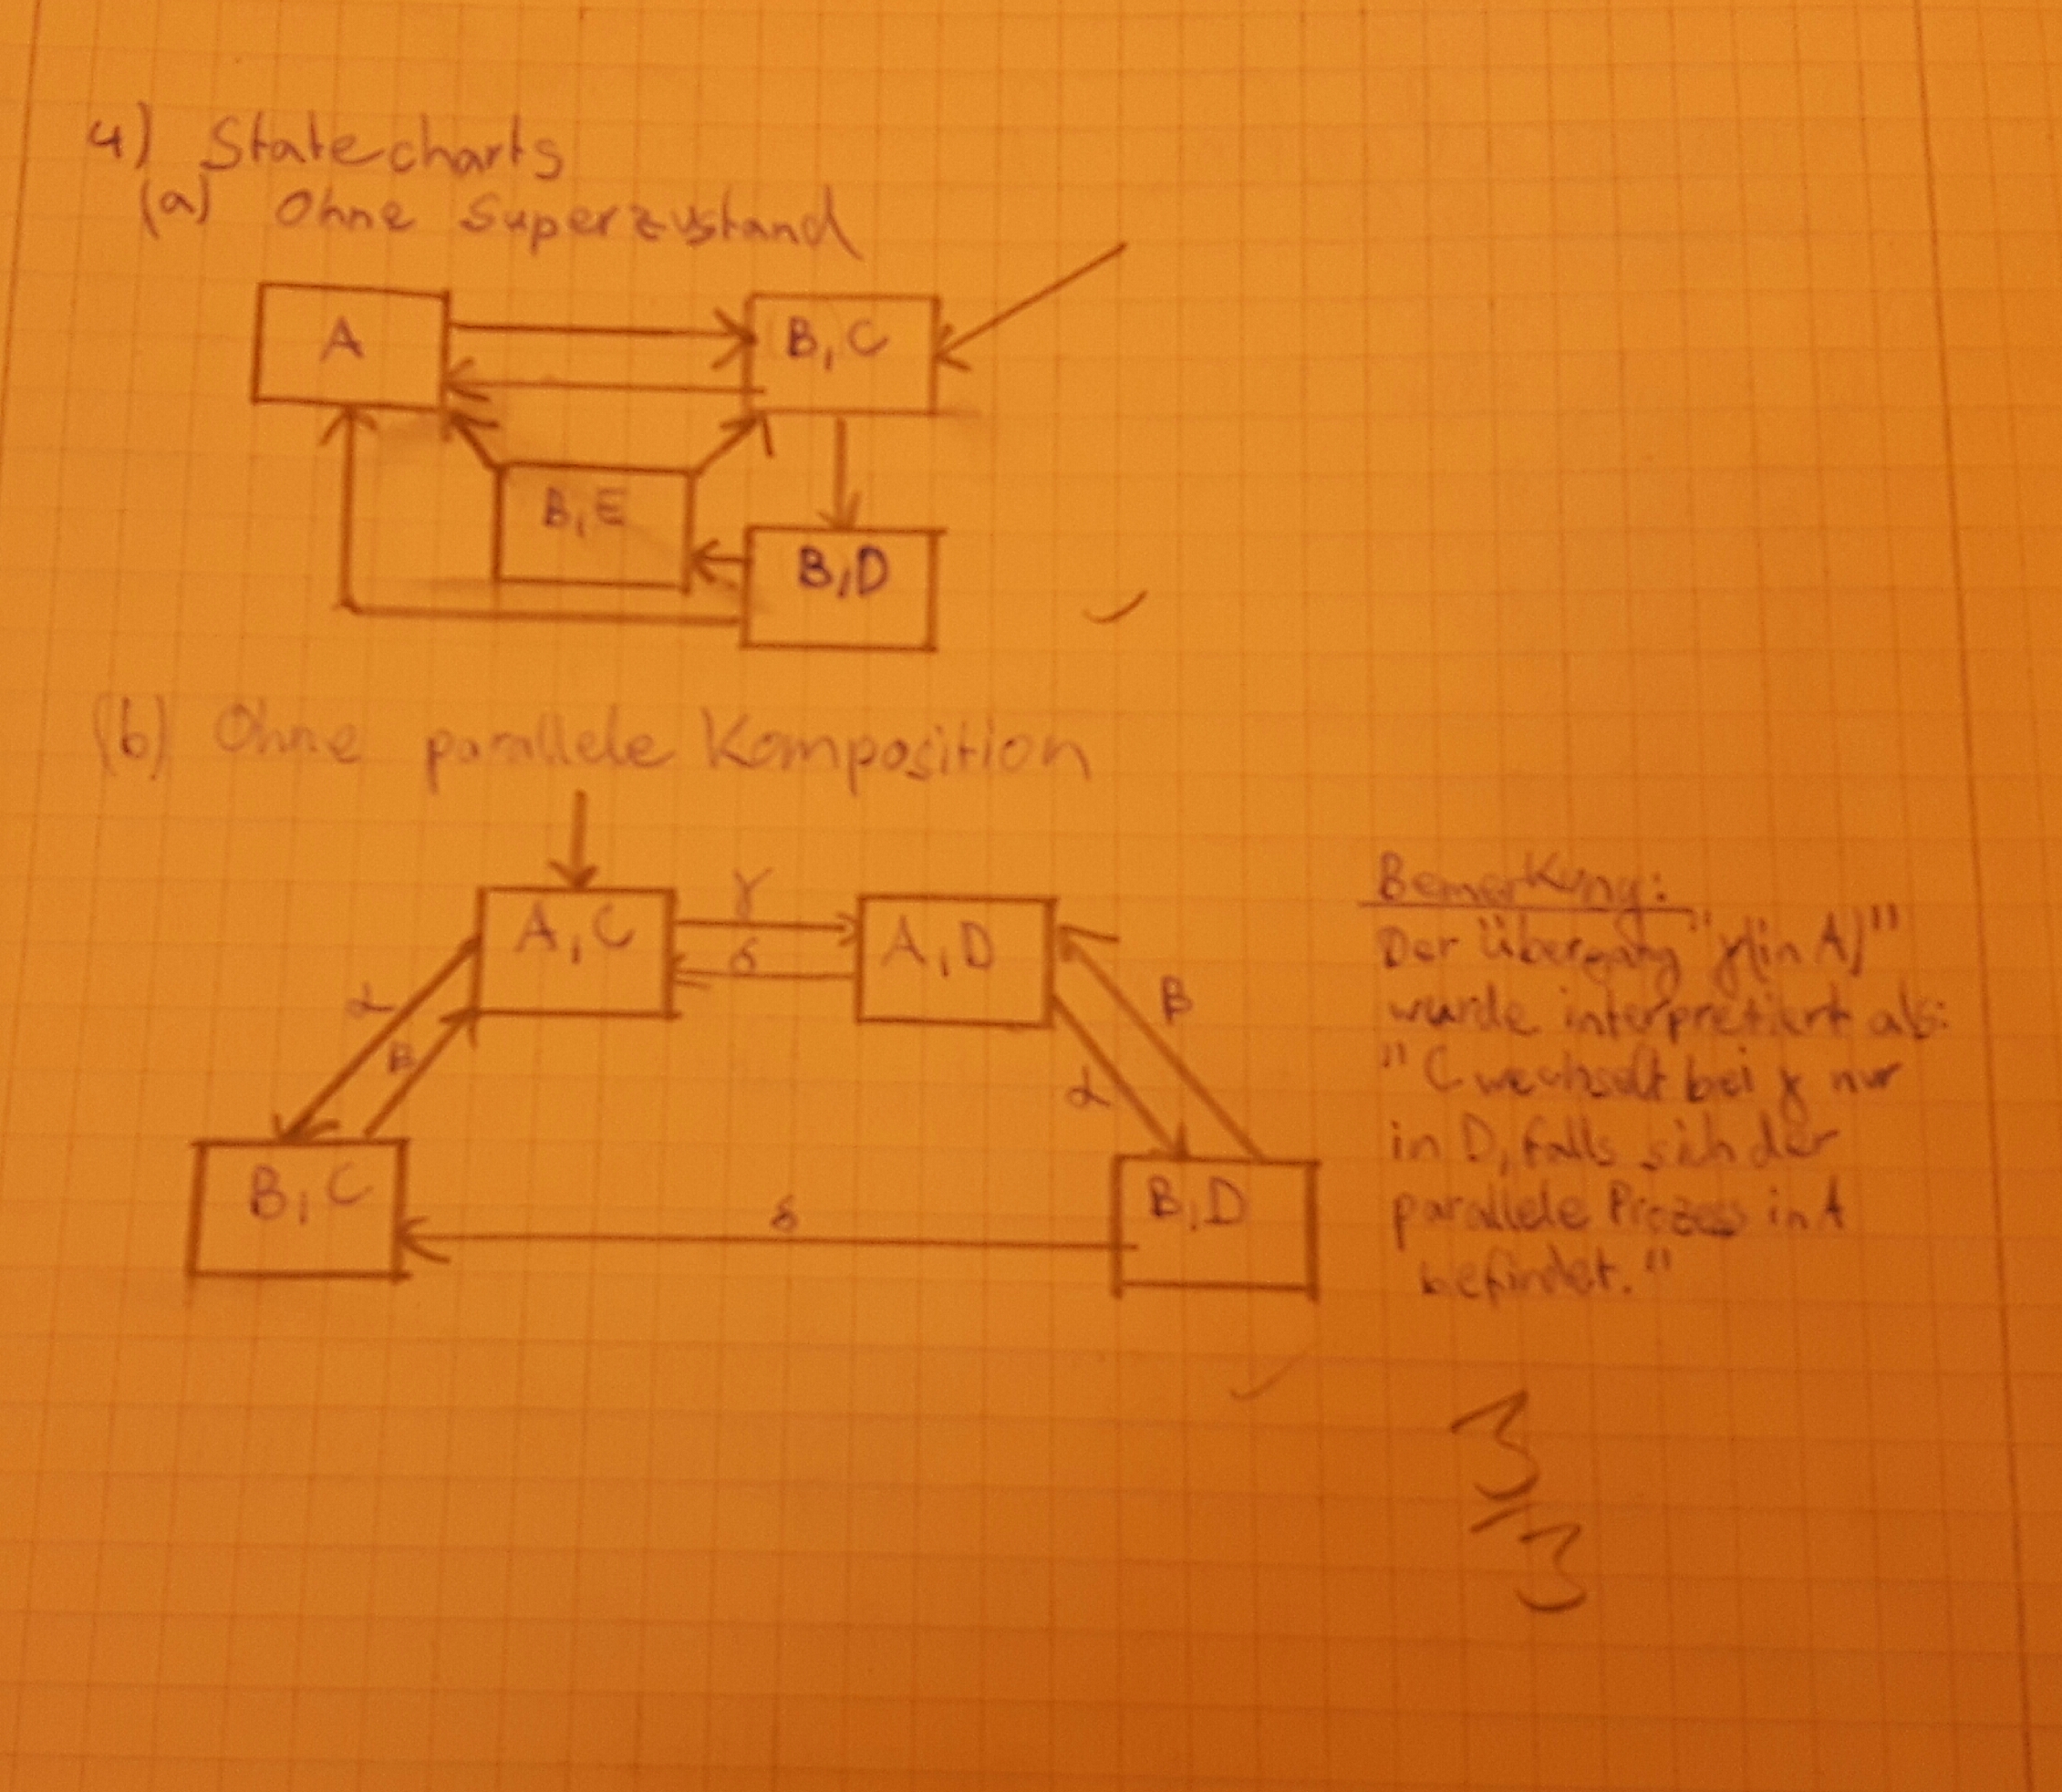 4) Statecharts
(a) Ohne Superzustand
A
B,C
B,E
B,D
(b) Ohne parallele Komposition
γ
A,C
A,D
δ
α
β
β
α
B,C
δ
B,D
Bemerkung:
Der Übergang "γ(in A)"
wurde interpretiert als:
"C wechselt bei γ nur
in D, falls sich der
parallele Prozess in A
befindet."
3
3